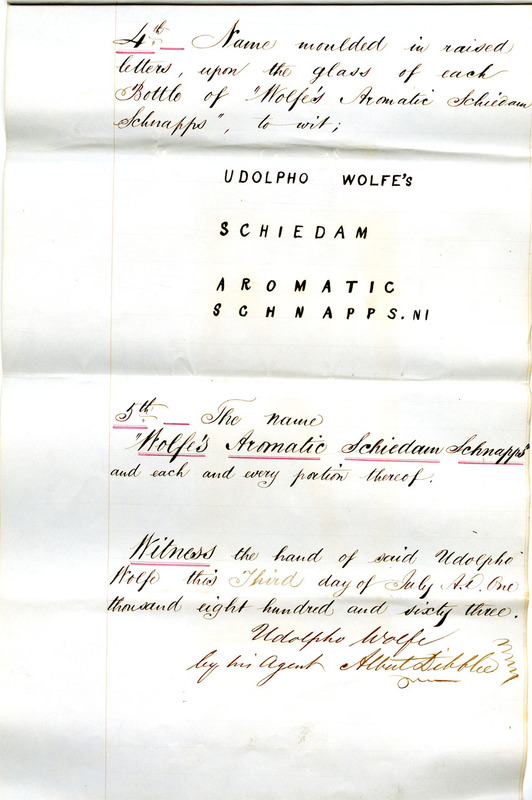 4th — Name moulded in raised
letters, upon the glass of each
Bottle of "Wolfe's Aromatic Schiedam
Schnapps", to wit;
UDOLPHO WOLFE'S
SCHIEDAM
AROMATIC
SCHNAPPS. NI
5th — The name
"Wolfe's Aromatic Schiedam Schnapps"
and each and every portion thereof.
Witness the hand of said Udolpho
Wolfe this Third day of July A.D. One
thousand eight hundred and sixty three.
Udolpho Wolfe
by his Agent Albert Dibblee